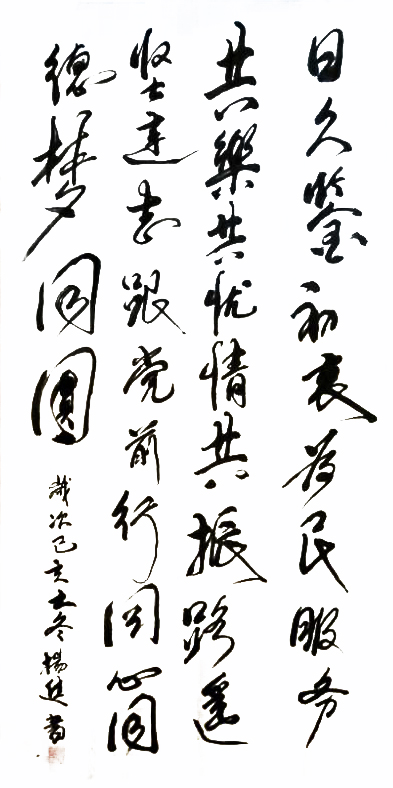 日久鉴初衷为民服务
共乐共忧情共振路遥
坚达志跟党前行同心同
德梦同圆
岁次己亥之冬杨进书